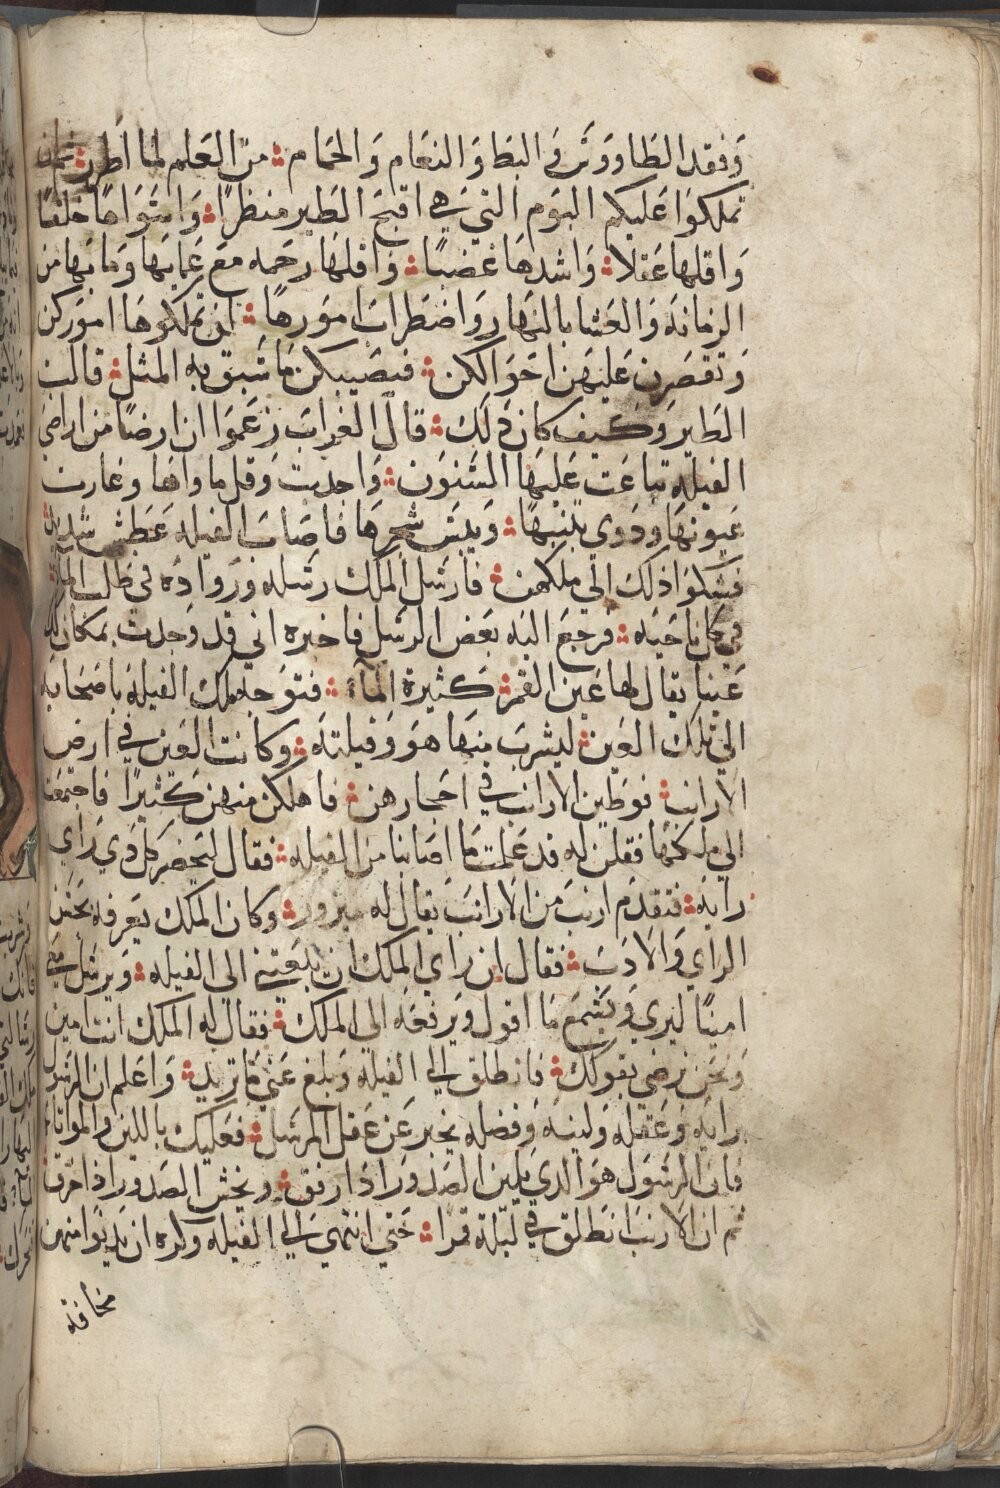 وفقد الطاووس في البط والنعام والحمام من العلم لما اضطررتن ان
تملكوا عليكم البوم التي هي اقبح الطير منظرًا وأسواها خلقا
واقلها عقلا واشدها غضبًا واقلها رحمه مع عمايها وما بها من
الزمانه والعشا بالنهار واضطراب امورها ان تملكوها اموركن
وتقصرن عليهن احوالكن فيصيبكن ما سبق به المثل قالت
الطير وكيف كان ذلك قال الغراب زعموا ان ارضًا من اراضي
الفيله تتابعت عليها السنون واجدبت وقل ماواها وغارت
عيونها وذوي بنبتها ويبس شجرها فاصاب الفيله عطش شديد
فشكوا ذلك الى ملكهن فارسل الملك رسله ورواده في طلب الما
في كل ناحيه فرجع اليه بعض الرسل فاخبره اني قد وجدت بمكان
عينا يقال لها عين القمر كثيرة المآء فتوجه ملك الفيله باصحابه
الى تلك العين ليشرب منها هو وفيلته وكانت العين في ارض
الارانب فوطين الارانب في احجارهن فاهلكن منهن كثيرًا فاجتمعن
الى ملكها فقلن له قد علمت ما اصابنا من الفيله فقال ليحضر كل ذي راي
رايه فتقدم ارنب من الارانب يقال له فيروز وكان الملك يعرفه بحسن
الراي والادب فقال ان راي الملك ان يبعثني الى الفيله ويرسل معي
امينًا ليري ويسمع ما اقول ويرفعه الى الملك فقال له الملك انت امين
ونحن نرضي بقولك فانطلق الى الفيله وبلغ عني ما تريد واعلم ان الرسول
برايه وعقله ولينه وفضله يخبر عن عقل المرسل فعليك باللين والمواتاه
فان الرسول هو الذي يلين الصدور اذا رفق ويخشن الصدور اذا خرق
ثم ان الارنب انطلق في ليلة قمرا حتى انتهى الى الفيله وكره ان يدنوا منهن
مخافة